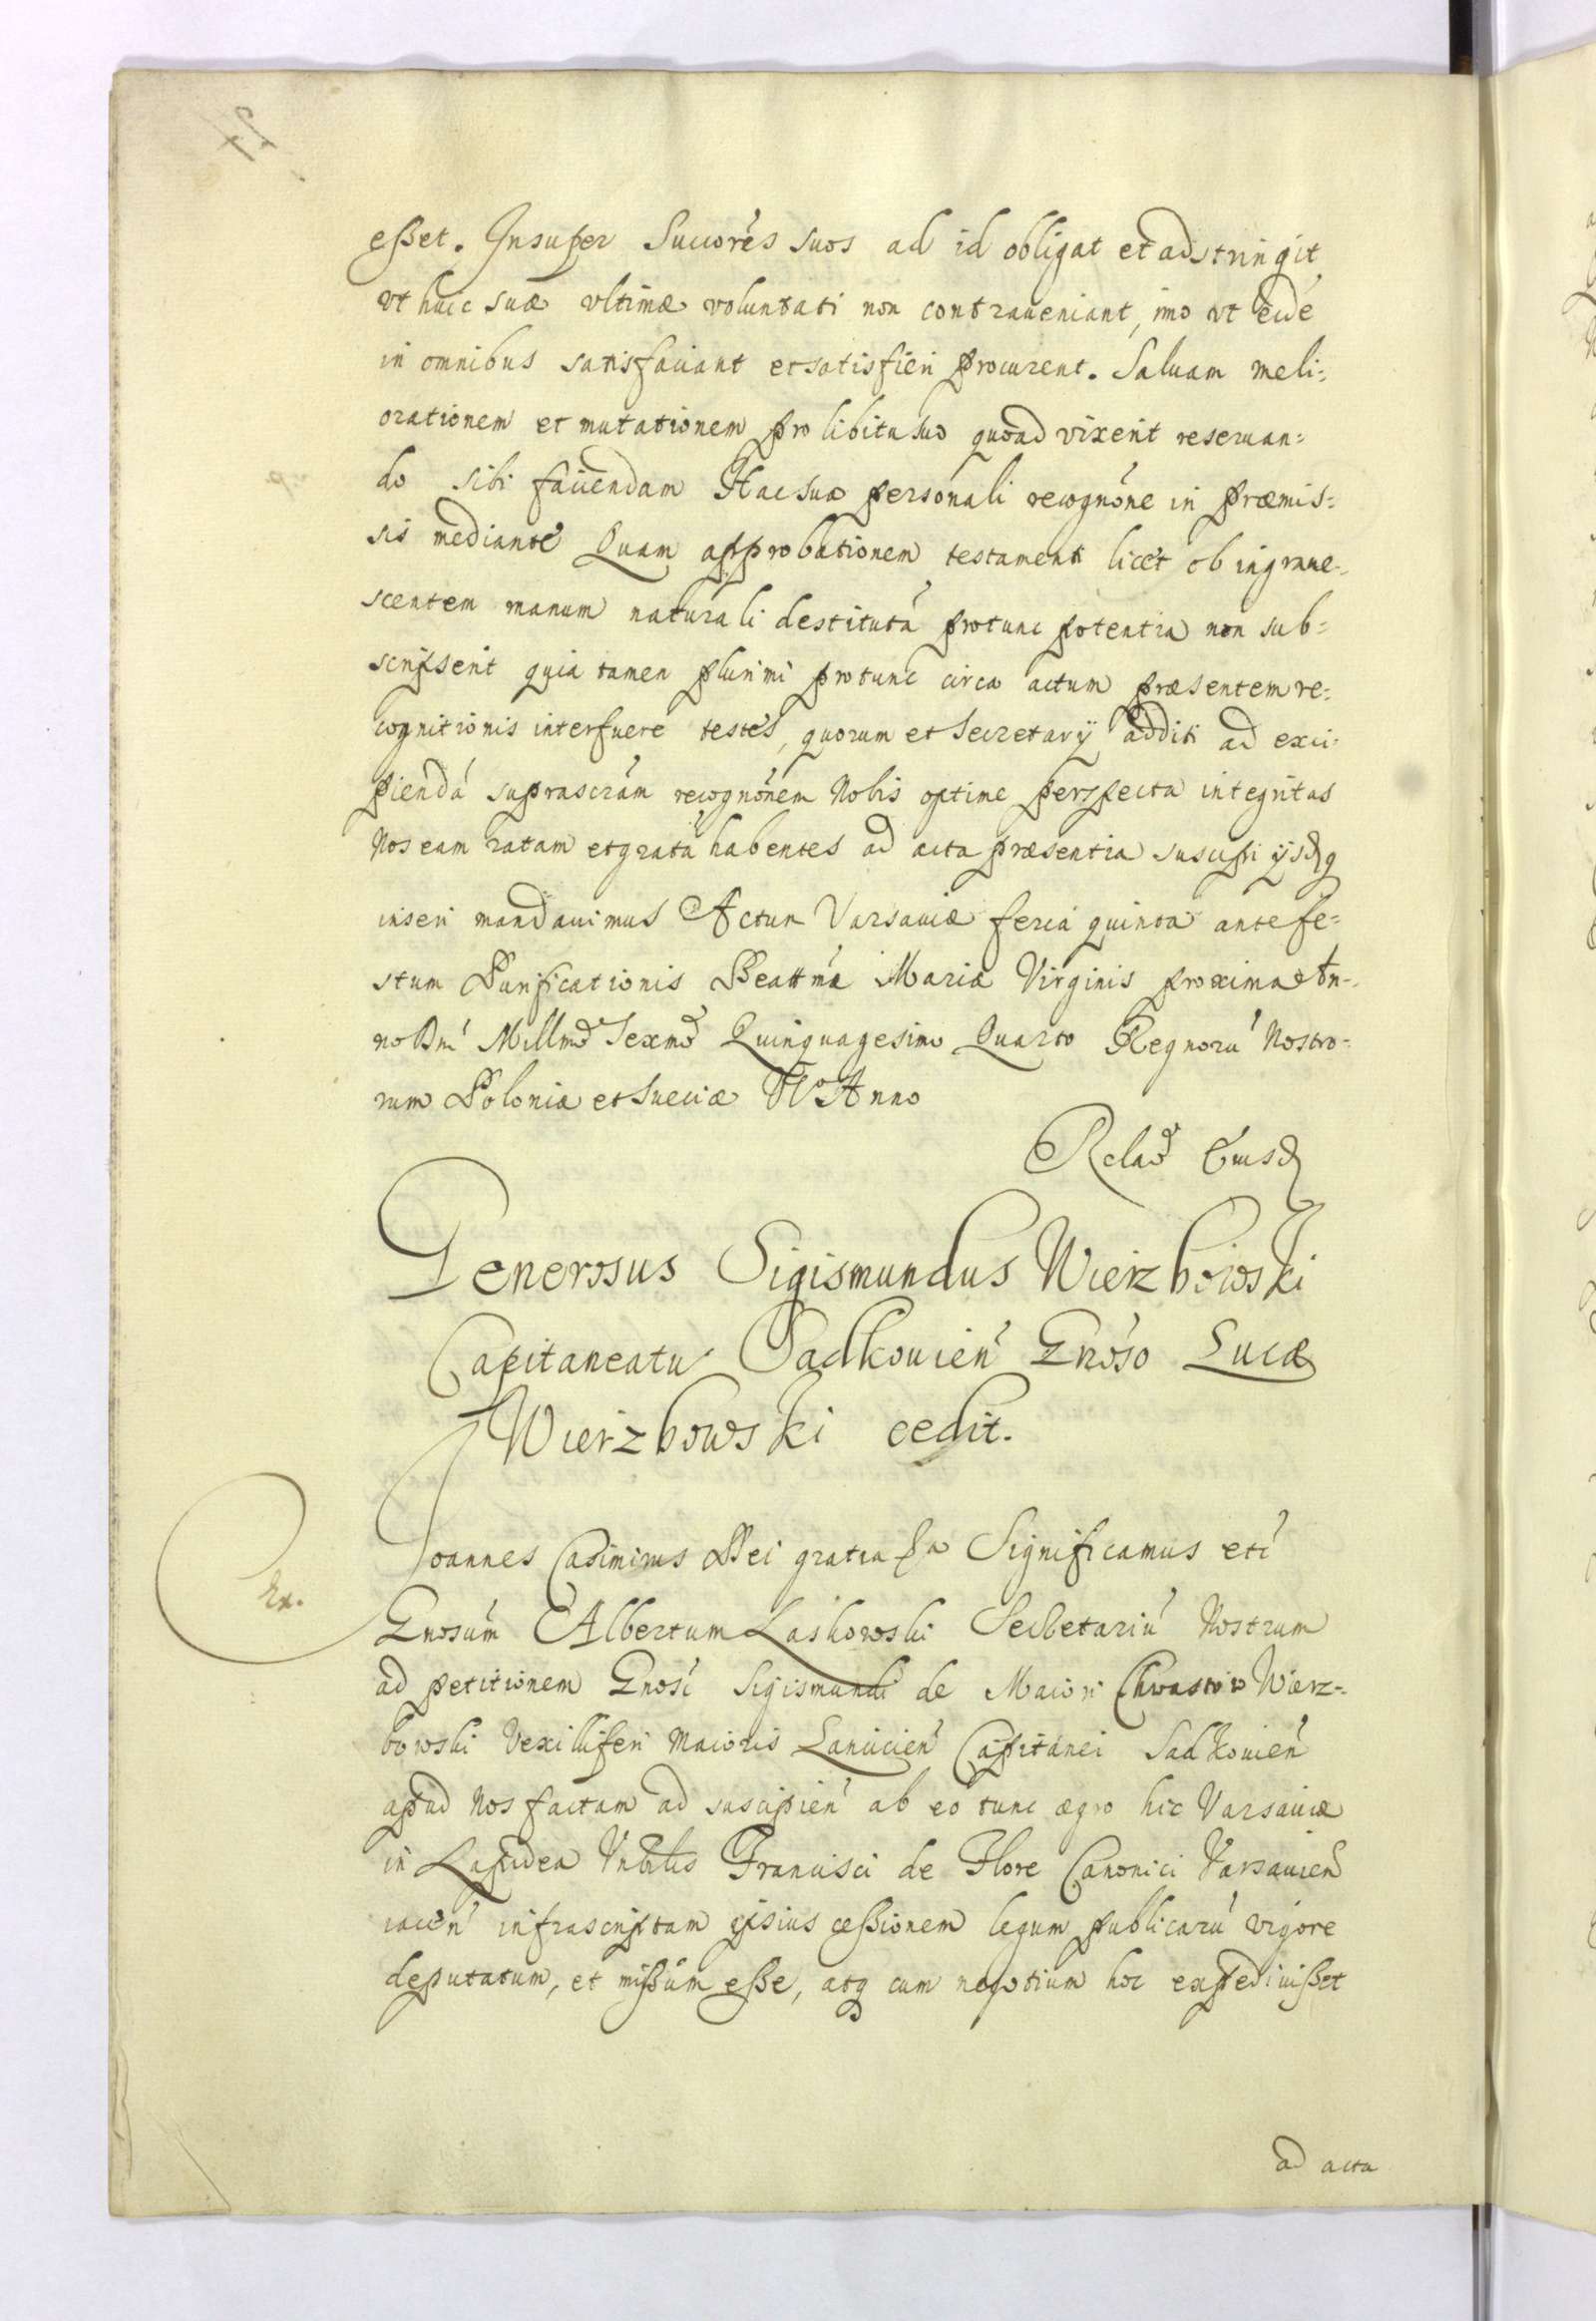 eßet. Insuper Succorés suos ad id obligat et adstringit
vt huic suæ vltimæ voluntati non contraueniant, imo vt eidé
in omnibus satisfaciant et satisfieri procurent. Saluam meli=
orationem et mutationem pro libitu suo quoad vixerit reseruan=
do sibi faciendam Hac sua personali recognóne in præmis=
sis mediante Quam approbationem testamenti licet ob ingraue=
scentem manum naturali destitutá protunc potentia non sub=
scripserit quia tamen plurimi protunc circa actum præsentem re=
cognitionis interfuere testes, quorum et Secretarÿ additi ad exci=
piendá suprascrám recognónem Nobis optime perspecta integritas
Nos eam ratam et gratá habentes ad acta præsentia suscipi ÿsdq
inseri mandauimus Actum Varsauiæ feria quinta ante fe=
stum Purificationis Beattmæ Mariæ Virginis proxima An=
no Dni Millmo Sexmo Quinquagesimo Quarto Regnorú Nostro=
rum Poloniæ et Sueciæ VI Anno
Relao Eiusd
Generosus Sigismundus Wierzbowski
Capitaneatu Sadkouień Gnóso Lucæ
Wierzbowski cedit.
Joannes Casimirus Dei gratia Significamus etć
Ex.
Gnosúm Albertum Laskowski Secretariú Nostrum
ad petitionem Gnosi Sigismundi de Maiori Chvastow Wierz=
bowski Vexilliferi Maioris Lancicień Capitanei Sadkouień
apud Nos factam ad suscipień ab eo tunc ægro hic Varsauiæ
in Lapidea Vnblis Francisci de Flore Canonici Varsauień
iacéń infrascriptam ipsius ceßionem legum publicarú vigore
deputatum, et mißum eße, atq cum negotium hoc expediuißet
ad acta